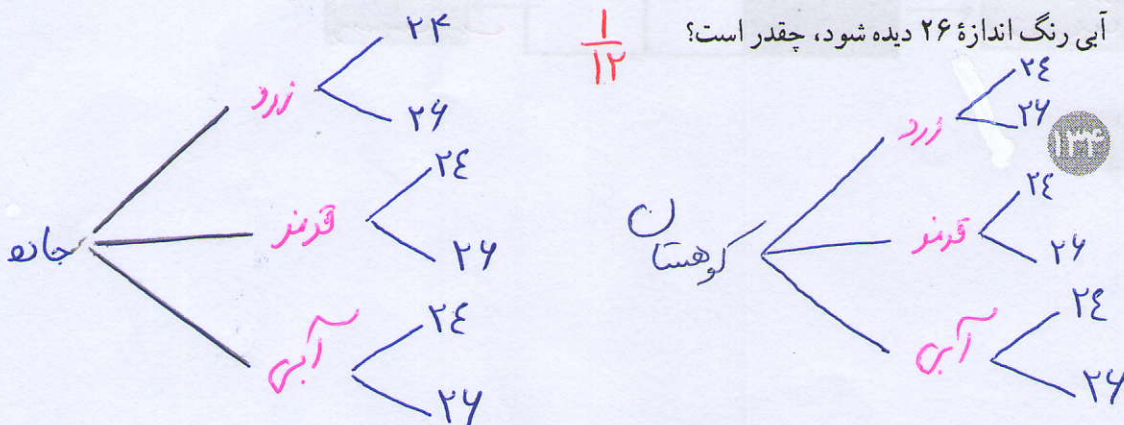 آبی رنگ اندازهٔ ۲۶ دیده شود، چقدر است؟
۱/۱۲
۱۳۴
کوهستان
زرد
۲۴
۲۶
قرمز
۲۴
۲۶
آبی
۲۴
۲۶
جاده
زرد
۲۴
۲۶
قرمز
۲۴
۲۶
آبی
۲۴
۲۶